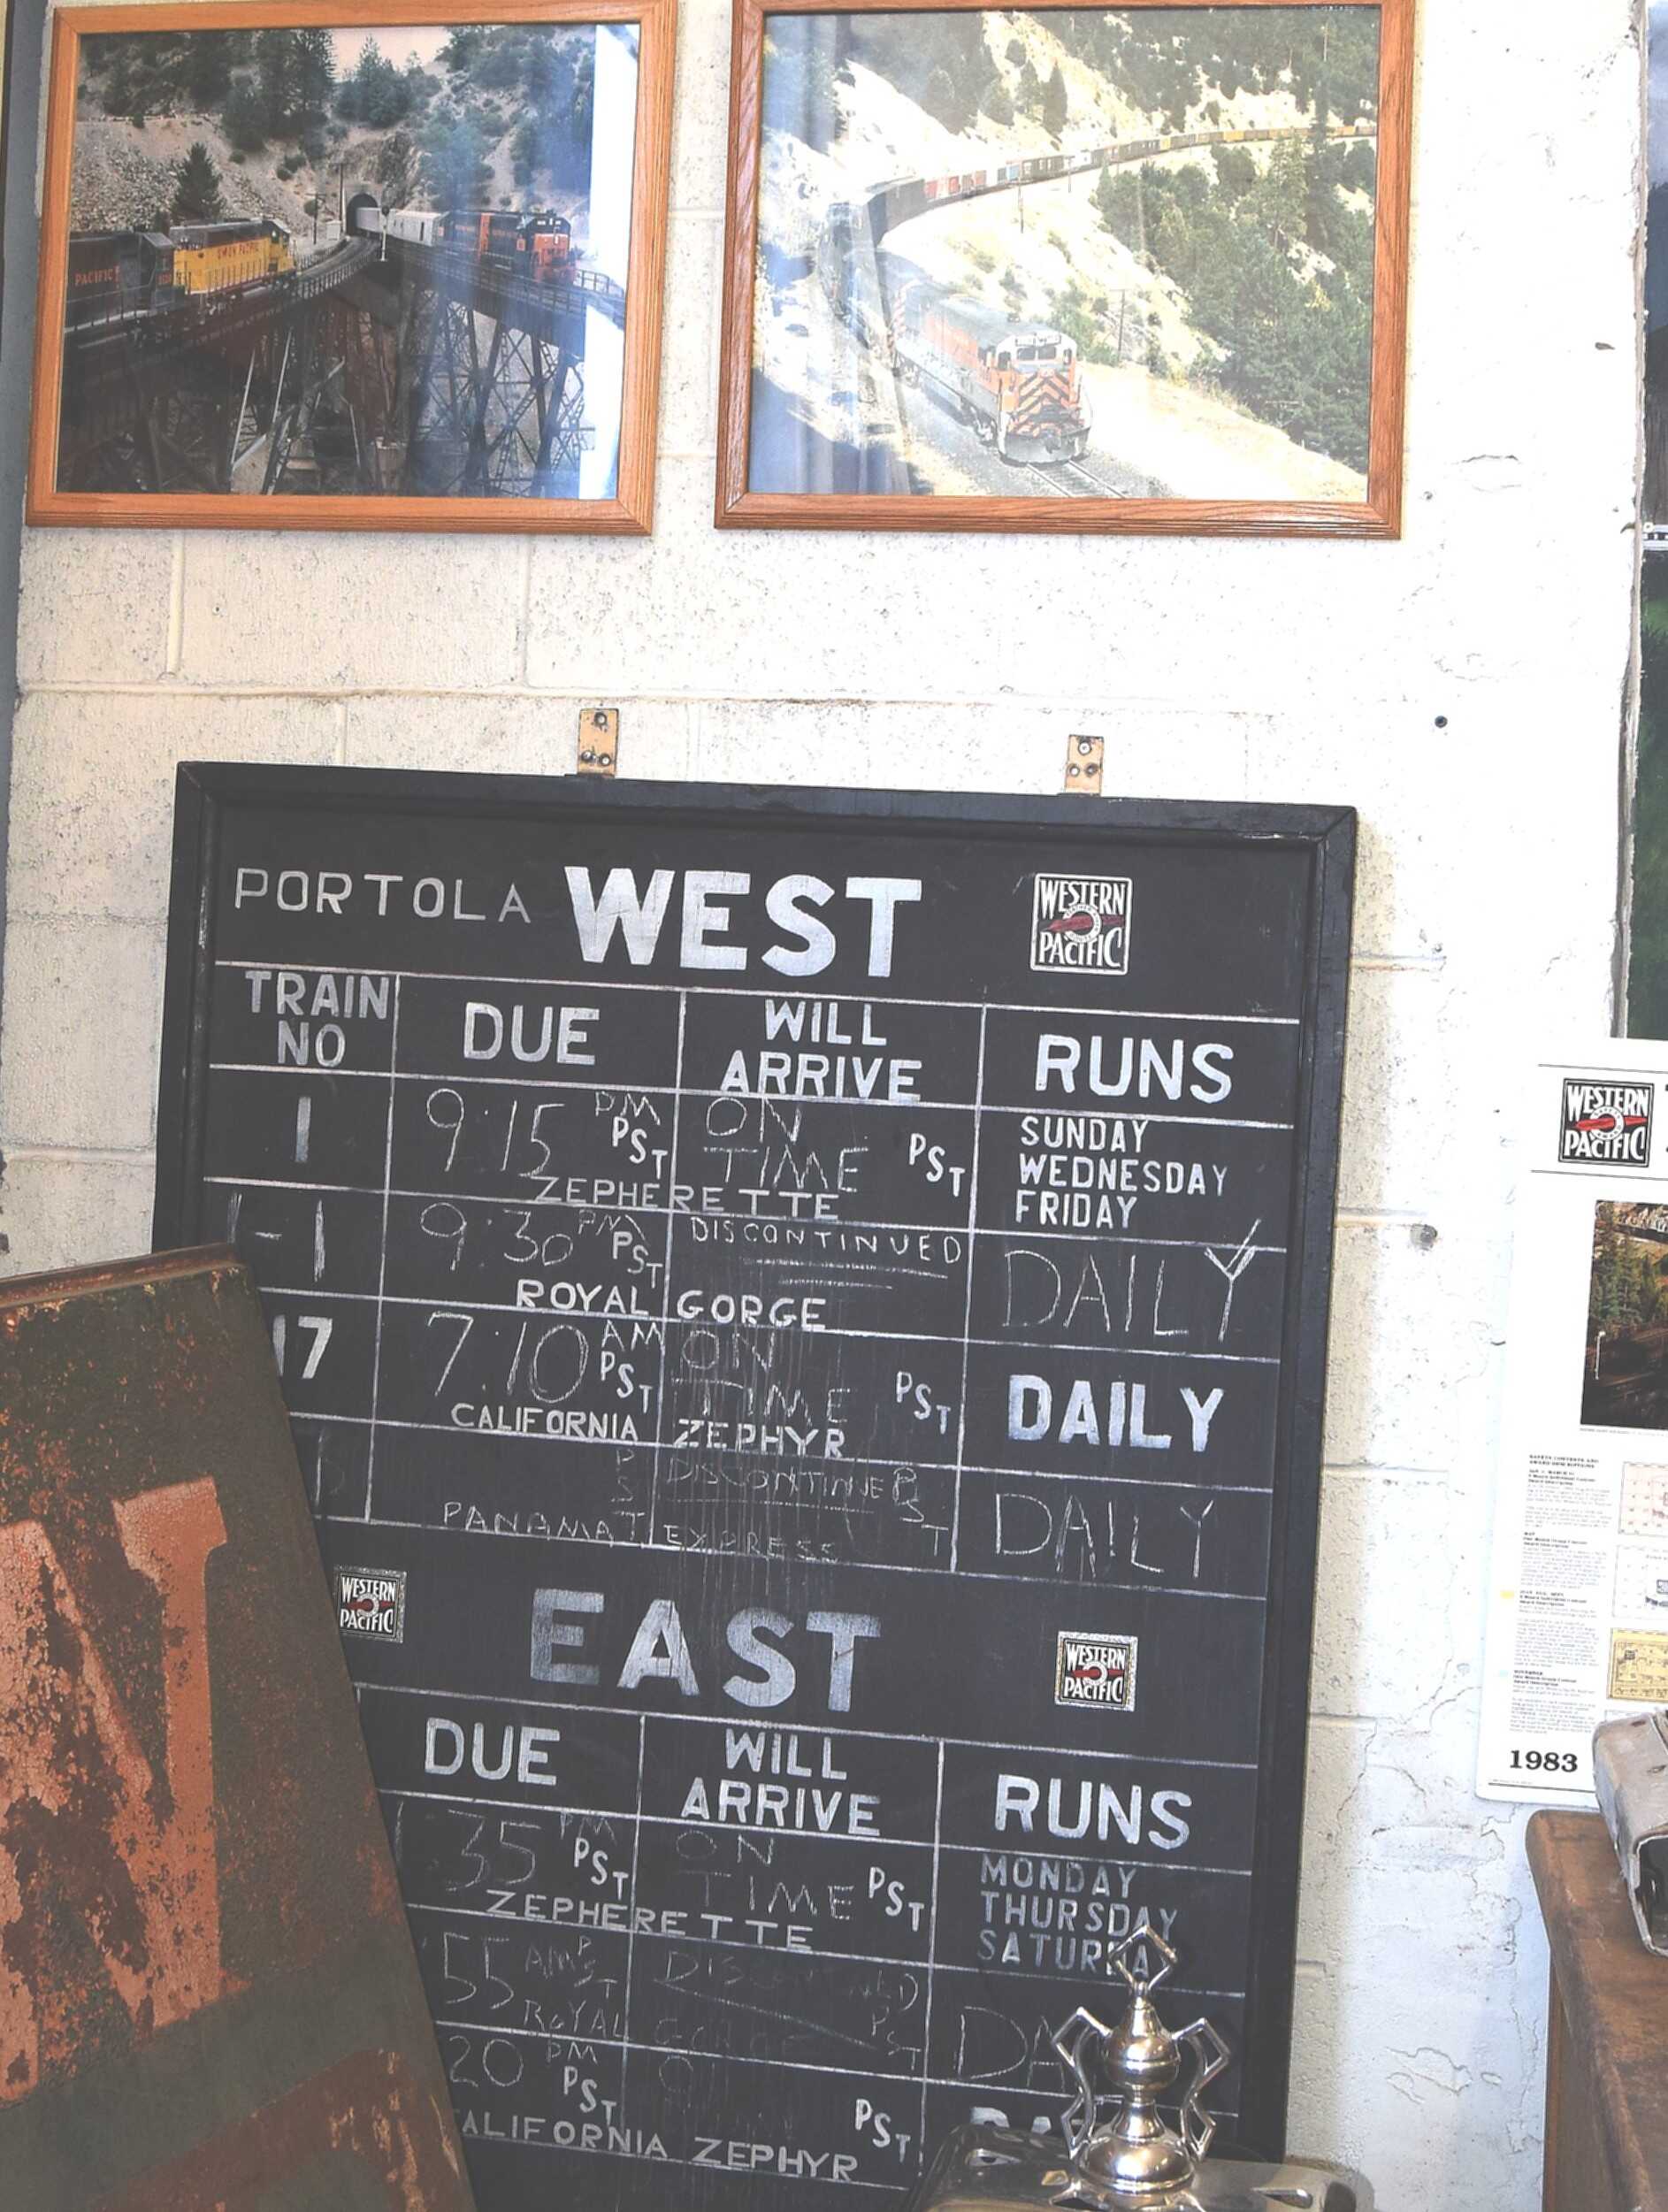 PACIFIC
UNION PACIFIC
PORTOLA WEST
WESTERN
PACIFIC
TRAIN NO
DUE
WILL ARRIVE
RUNS
1
9:15 PM PST
ON TIME PST
SUNDAY
WEDNESDAY
FRIDAY
ZEPHERETTE
9:30 PM PST
DISCONTINUED
DAILY
ROYAL GORGE
17
7:10 AM PST
ON TIME PST
DAILY
CALIFORNIA ZEPHYR
PST
DISCONTINED PST
DAILY
PANAMA EXPRESS
WESTERN
PACIFIC
EAST
WESTERN
PACIFIC
DUE
WILL ARRIVE
RUNS
35 PM PST
ON TIME PST
MONDAY
THURSDAY
SATURDA
ZEPHERETTE
55 AM PST
PST
DA
ROYAL GORGE
20 PM PST
PST
CALIFORNIA ZEPHYR
WESTERN
PACIFIC
1983
N